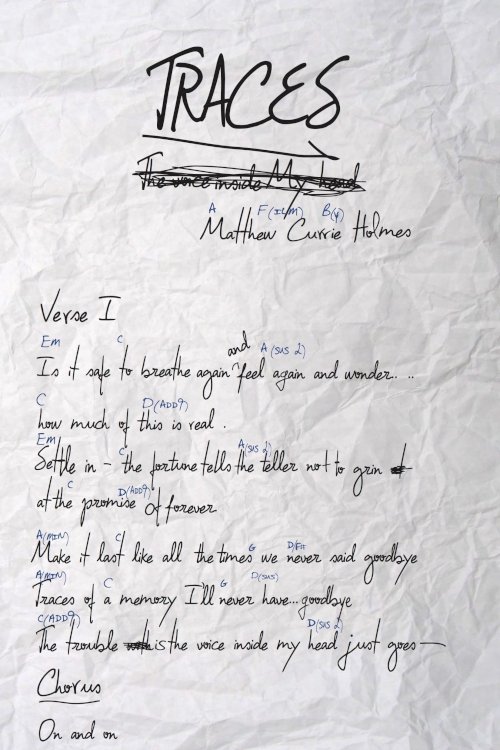 TRACES
The voice inside My head
A F(ILM) B(y)
Matthew Currie Holmes
Verse I
Em C and A(sus 2)
Is it safe to breathe again ^ feel again and wonder...
C D(ADD9)
how much of this is real.
Em C A(sus 2)
Settle in - the fortune tells the teller not to grin
C D(ADD9)
at the promise of forever
A(MIN) C G D/F#
Make it last like all the times we never said goodbye
A(MIN) C G D(sus)
Traces of a memory I'll never have...goodbye
C(ADD9) D(sus 2)
The trouble is the voice inside my head just goes—
Chorus
On and on